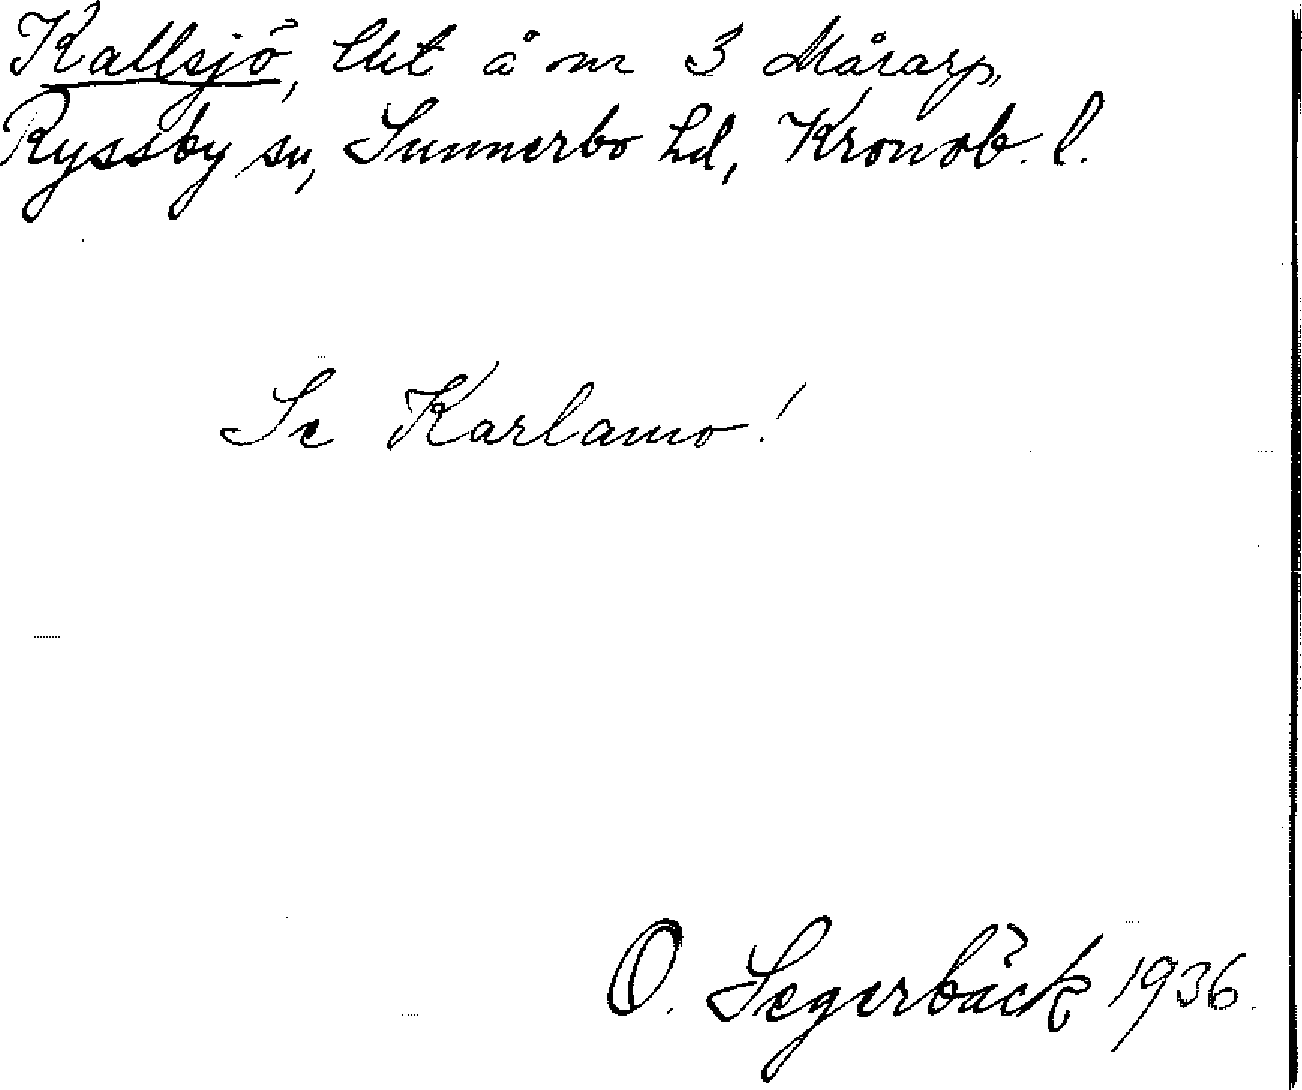 Kallsjö, lht å nr 3 Mårarp,
Ryssby sn, Sunnerbo hd, Kronob. l.
Se Karlamo!
O. Segerbäck 1936.